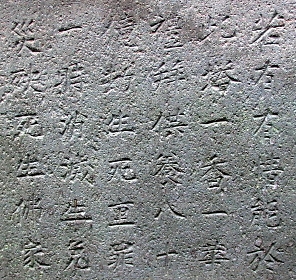 若有有情能於
此塔一香一華
禮拜供養八十
億劫生死重罪
一時消滅生免
災殃死生佛家